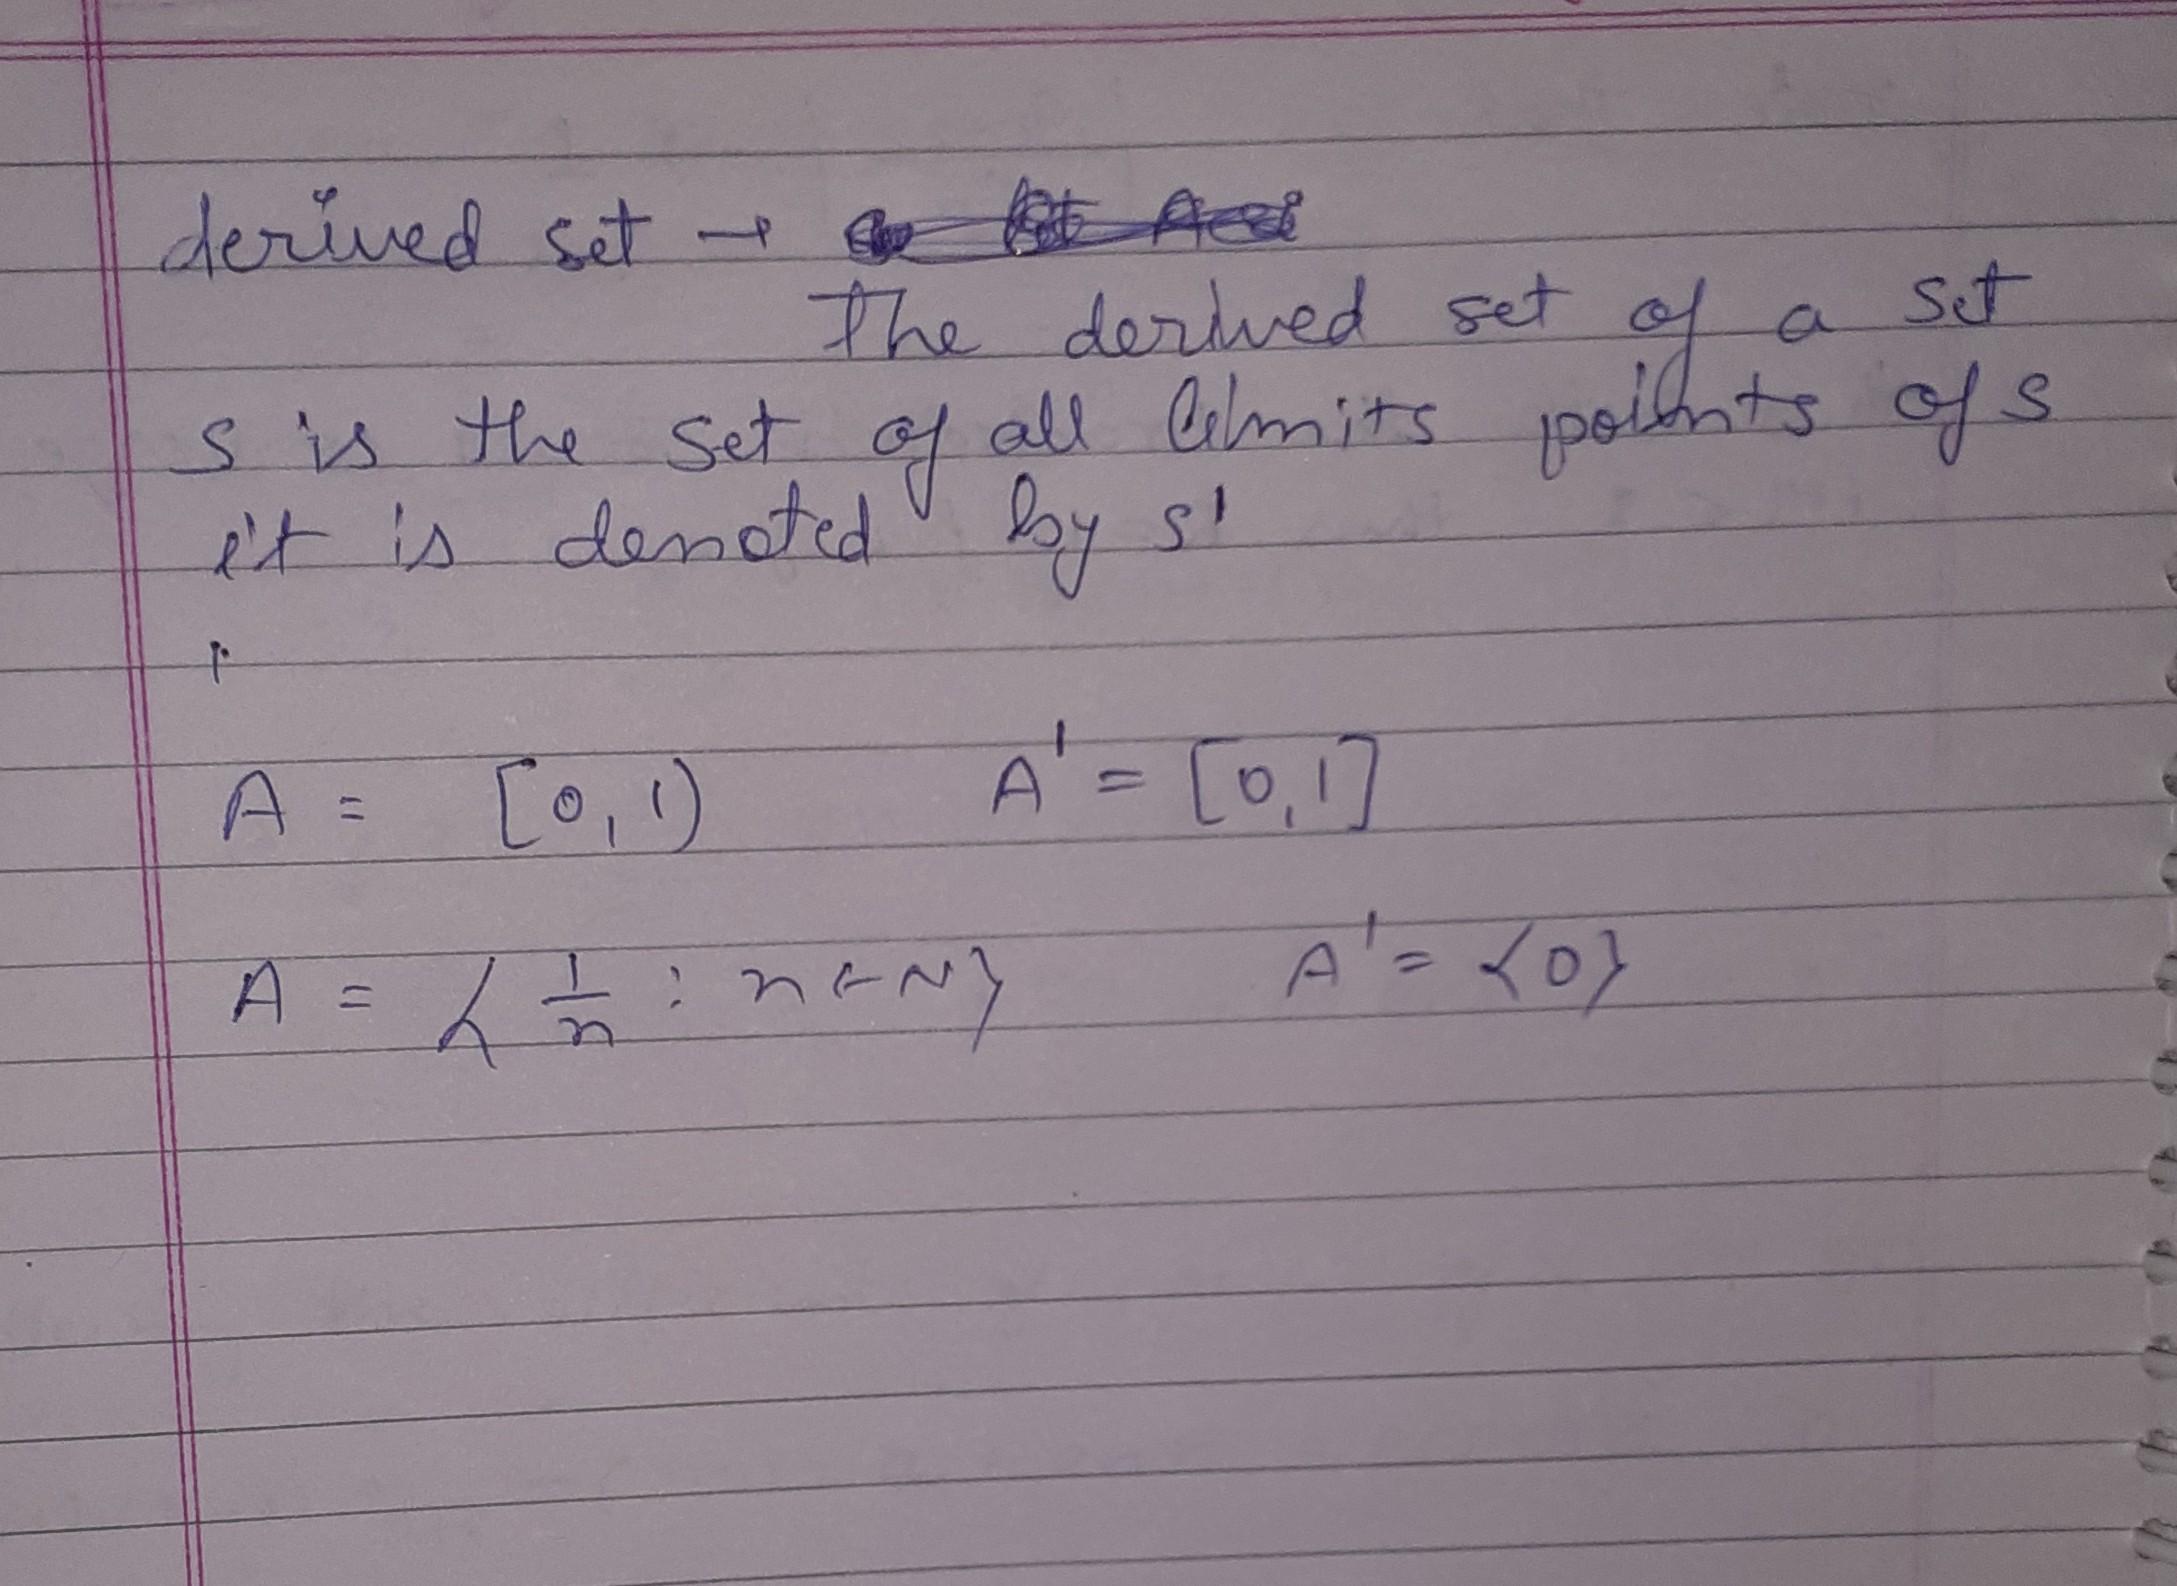 derived set →
The derived set of a set
s is the set of all limits points of s
it is denoted by s'
A = [0, 1) A' = [0, 1]
A = { 1/n : n ∈ N } A' = {0}